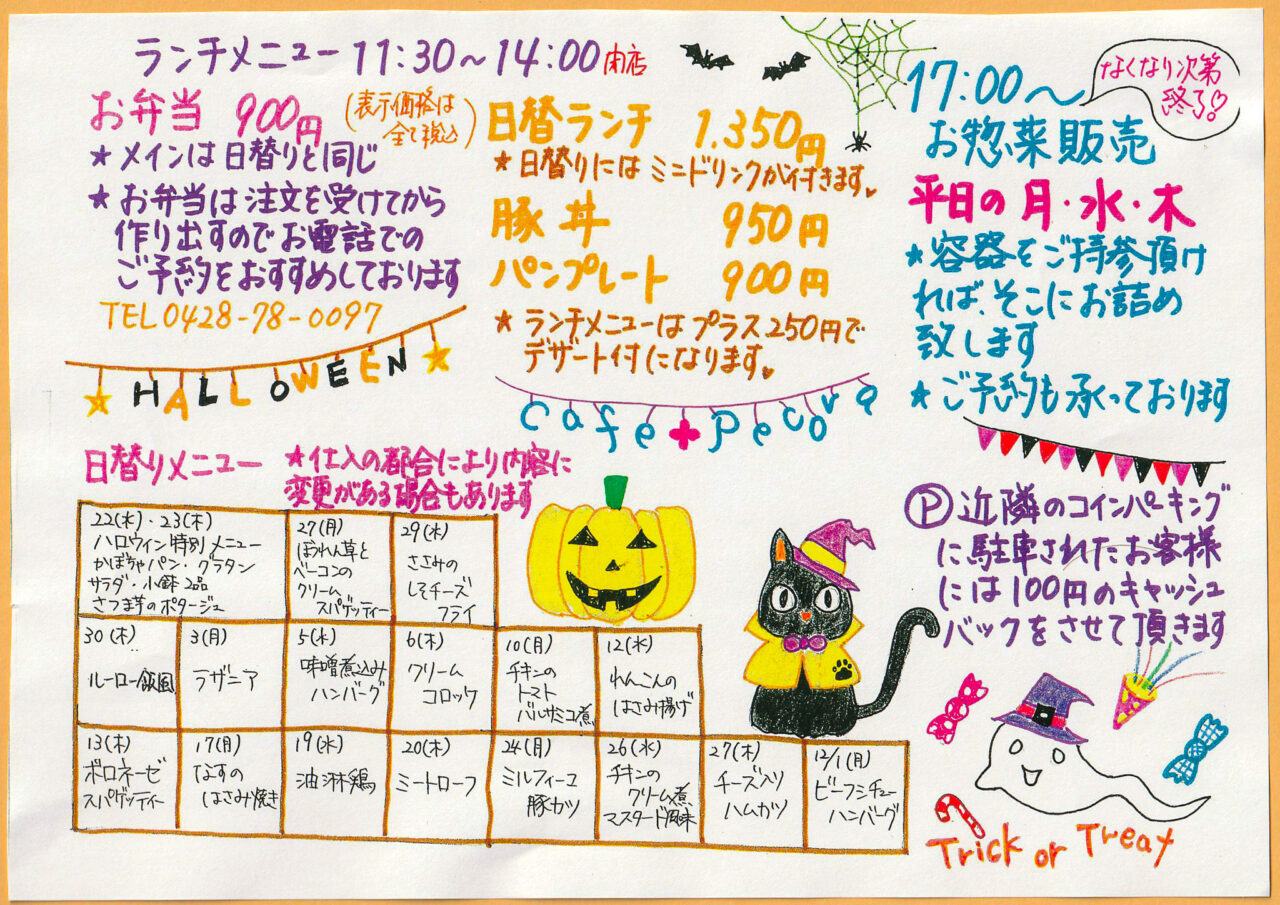 ランチメニュー 11:30～14:00 閉店
お弁当 900円
(表示価格は
全て税込)
★メインは日替りと同じ
★お弁当は注文を受けてから
作り出すのでお電話での
ご予約をおすすめしております
TEL 0428-78-0097
HALLOWEEN
日替ランチ 1.350円
★日替りにはミニドリンクが付きます♥
豚丼 950円
パンプレート 900円
★ランチメニューはプラス250円で
デザート付になります♥
cafe+pecora
17:00～
なくなり次第
終了♡
お惣菜販売
平日の月・水・木
★容器をご持参頂け
れば、そこにお詰め
致します
★ご予約も承っております
Ⓟ近隣のコインパーキング
に駐車されたお客様
には100円のキャッシュ
バックをさせて頂きます
日替りメニュー
★仕入の都合により内容に
変更がある場合もあります
22(水)・23(木)
ハロウィン特別メニュー
かぼちゃパン・グラタン
サラダ・小鉢2品
さつま芋のポタージュ
27(月)
ほうれん草と
ベーコンの
クリーム
スパゲッティー
29(水)
ささみの
しそチーズ
フライ
30(木)
ルーロー飯風
3(月)
ラザニア
5(水)
味噌煮込み
ハンバーグ
6(木)
クリーム
コロッケ
10(月)
チキンの
トマト
バルサミコ煮
12(水)
れんこんの
はさみ揚げ
13(木)
ボロネーゼ
スパゲッティー
17(月)
なすの
はさみ焼き
19(水)
油淋鶏
20(木)
ミートローフ
24(月)
ミルフィーユ
豚カツ
26(水)
チキンの
クリーム煮
マスタード風味
27(木)
チーズ入り
ハムカツ
12/1(月)
ビーフシチュー
ハンバーグ
Trick or Treat